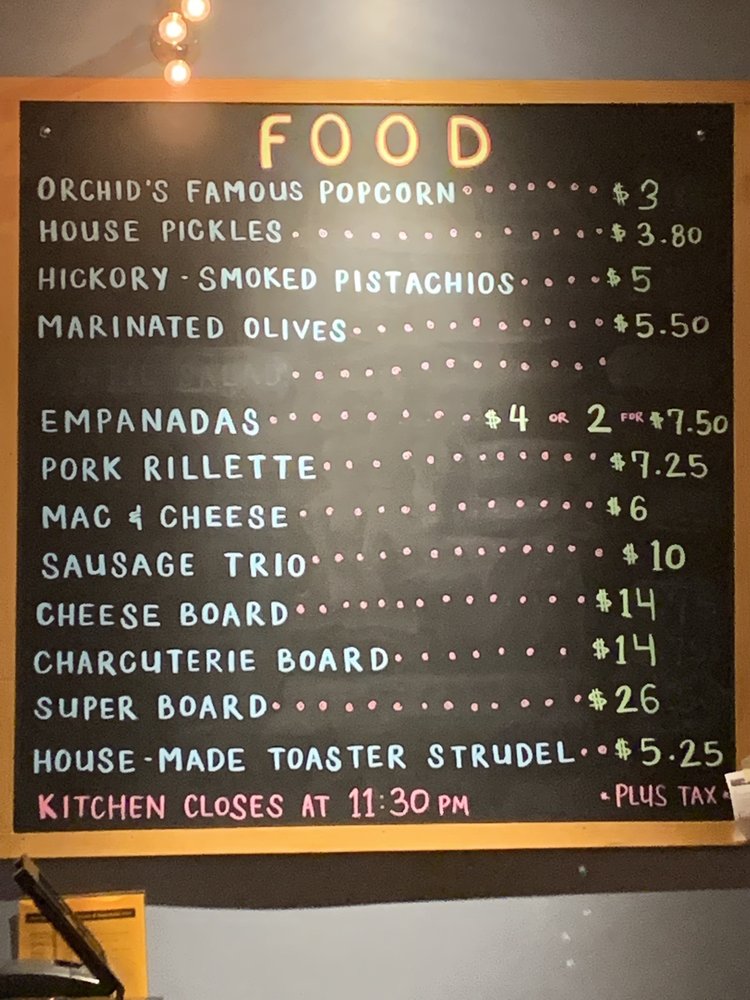 FOOD
ORCHID'S FAMOUS POPCORN $3
HOUSE PICKLES $3.80
HICKORY-SMOKED PISTACHIOS $5
MARINATED OLIVES $5.50
EMPANADAS $4 OR 2 FOR $7.50
PORK RILLETTE $7.25
MAC & CHEESE $6
SAUSAGE TRIO $10
CHEESE BOARD $14
CHARCUTERIE BOARD $14
SUPER BOARD $26
HOUSE-MADE TOASTER STRUDEL $5.25
KITCHEN CLOSES AT 11:30 PM • PLUS TAX •